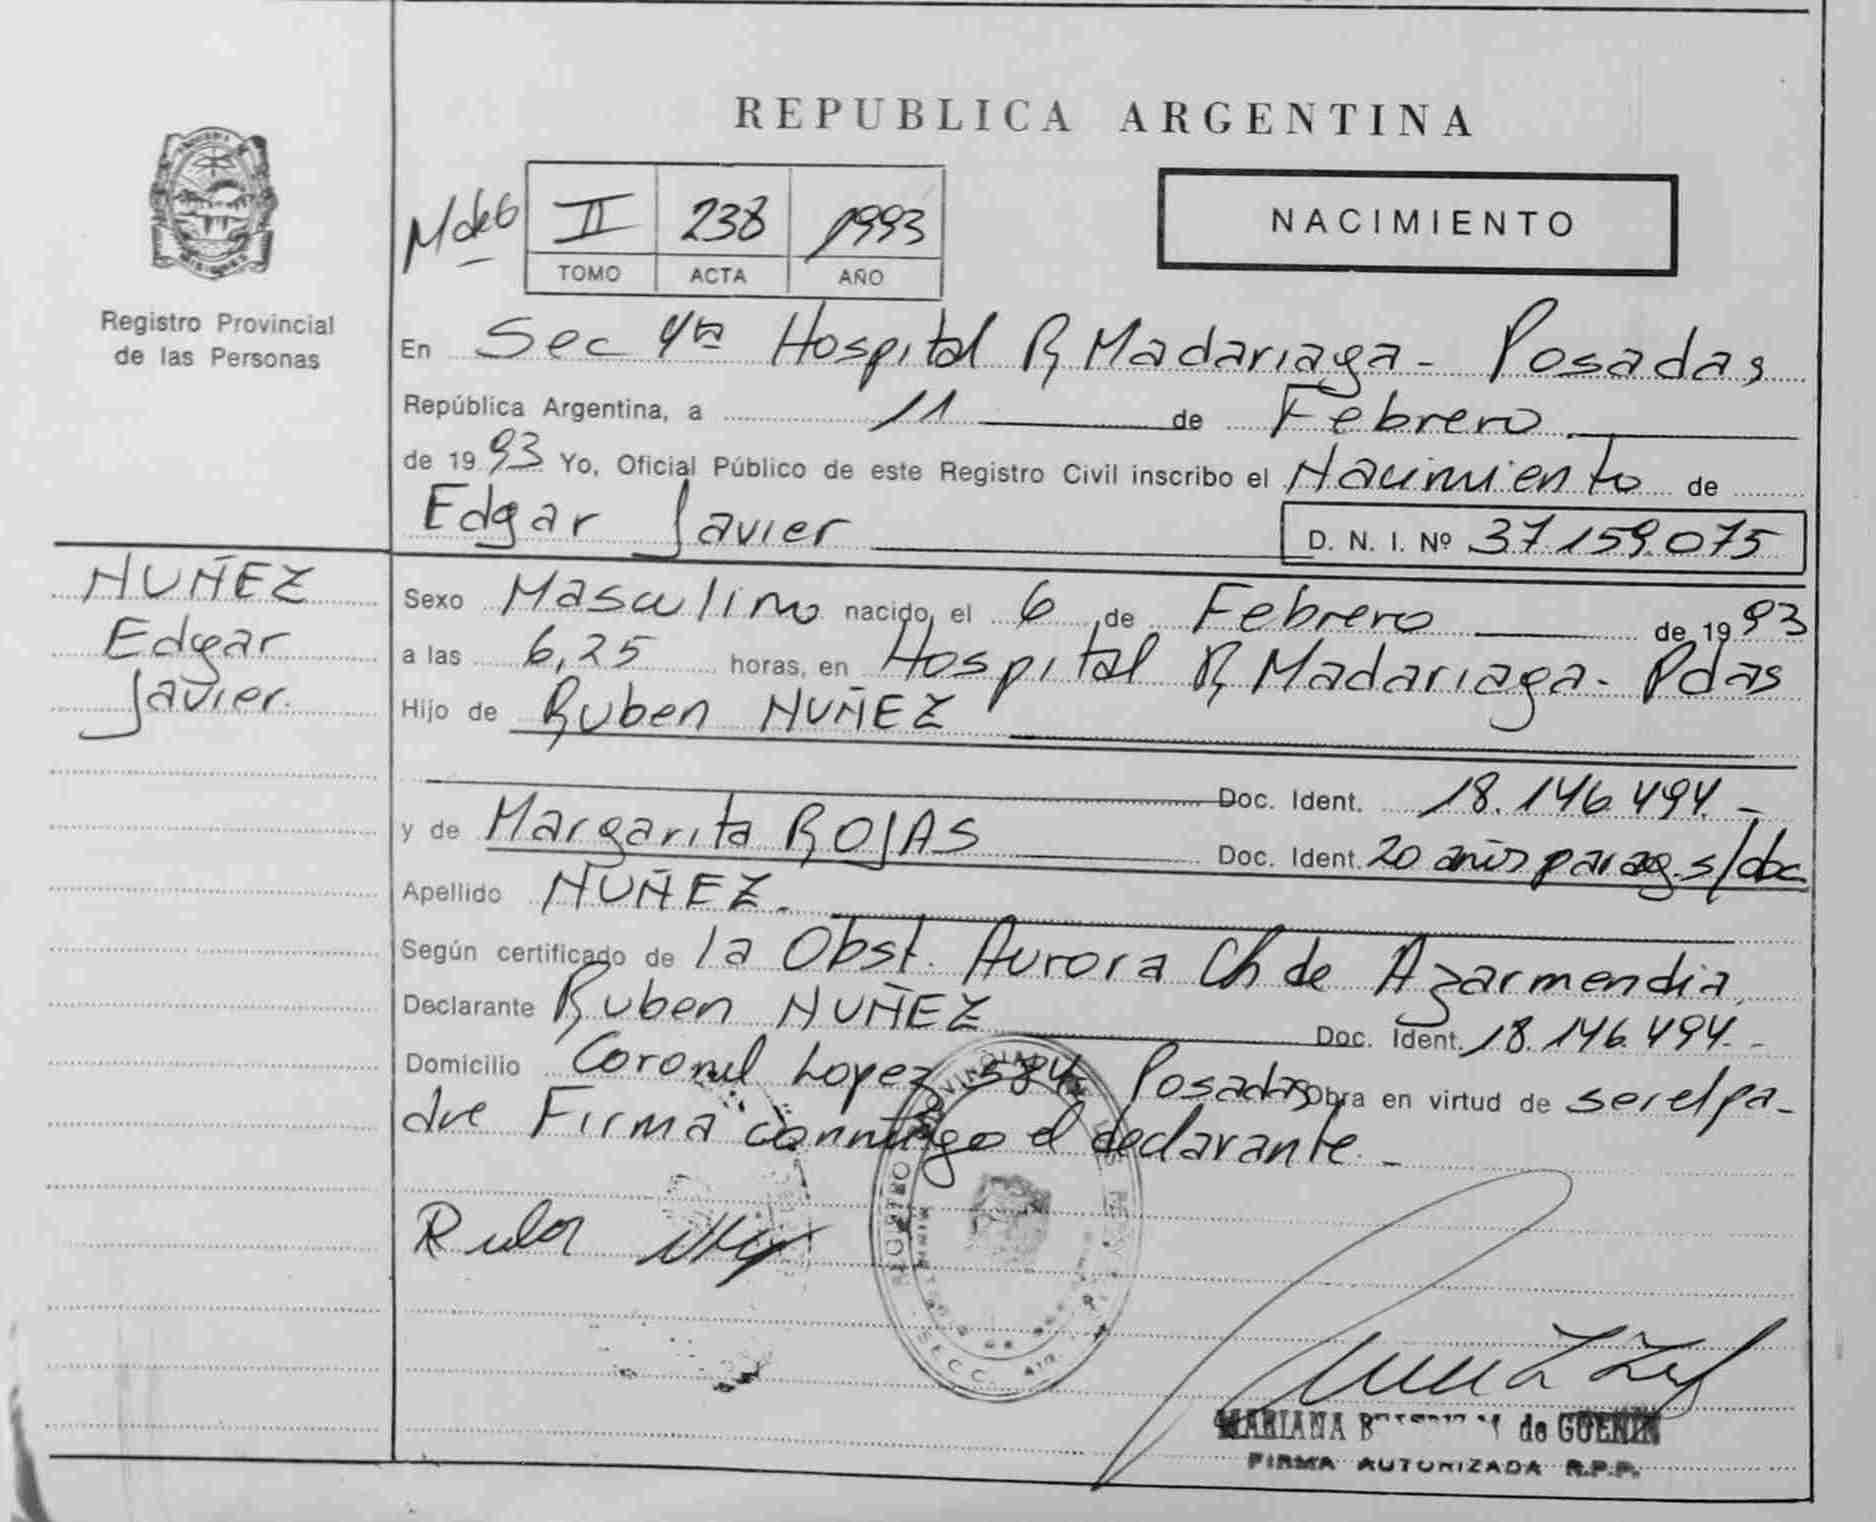 REPUBLICA ARGENTINA
NACIMIENTO
M de G
II 238 1993
TOMO ACTA AÑO
MISIONES
Registro Provincial
de las Personas
En Sec 4ta Hospital R Madariaga - Posadas
República Argentina, a 11 de Febrero
de 1993 Yo, Oficial Público de este Registro Civil inscribo el Nacimiento de
Edgar Javier
D. N. I. Nº 37.159.075
NUÑEZ
Edgar
Javier.
Sexo Masculino nacido, el 6 de Febrero de 1993
a las 6,25 horas, en Hospital R Madariaga - Pdas
Hijo de Ruben NUÑEZ
Doc. Ident. 18.146.494.-
y de Margarita ROJAS Doc. Ident. 20 años parag. s/doc.
Apellido NUÑEZ.
Según certificado de la Obst. Aurora Ch de Azarmendia
Declarante Ruben NUÑEZ Doc. Ident. 18.146.494.-
Domicilio Coronel Lopez 584 Posadas Obra en virtud de ser el pa-
dre Firma conmigo el declarante.-
Ruben
REGISTRO PROVINCIAL DE LAS
SECC.
MARIANA de GUENIN
FIRMA AUTORIZADA R.P.P.